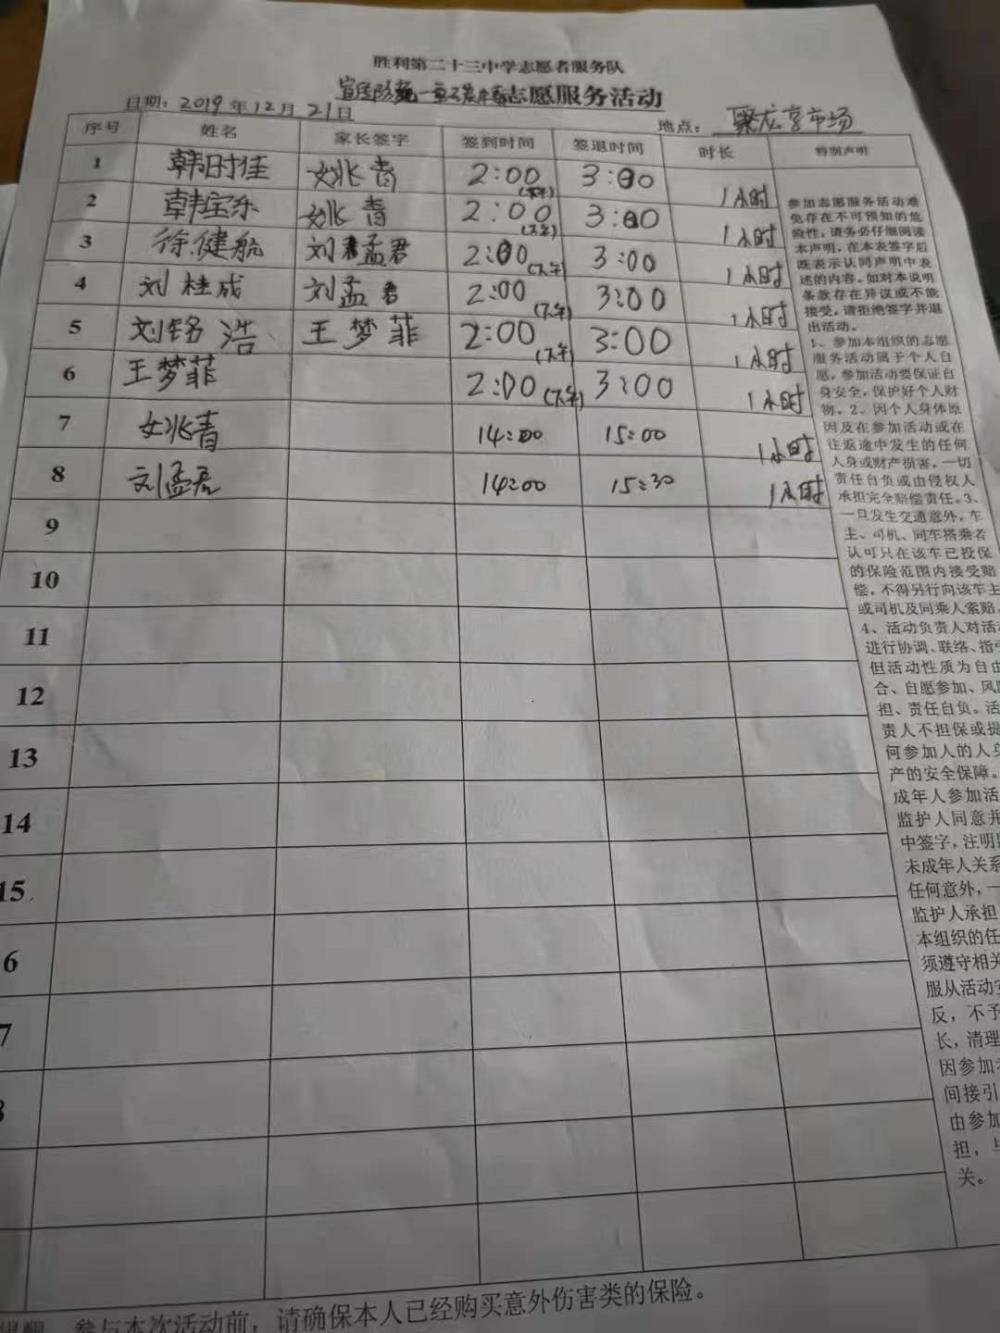 胜利第二十三中学志愿者服务队
志愿服务活动
日期：2019年12月21日
地点：聚龙宫市场
序号 姓名 家长签字 签到时间 签退时间 时长 特别声明
1 韩时佳 姚青 2:00 3:00 1小时
2 韩宝乐 姚青 2:00(下午) 3:00 1小时
3 徐健航 刘孟君 2:00(下午) 3:00 1小时
4 刘桂成 刘孟君 2:00(下午) 3:00 1小时
5 刘铭浩 王梦菲 2:00(下午) 3:00 1小时
6 王梦菲 2:00(下午) 3:00 1小时
7 姚青 14:00 15:00 1小时
8 刘孟君 14:00 15:30 1小时
9
10
11
12
13
14
15
6
7
参加志愿服务活动难
免存在不可预知的危
险性，请务必仔细阅读
本声明，在本表签字后
既表示认同声明中表
述的内容。如对本说明
条款存在异议或不能
接受，请拒绝签字并退
出活动。
1、参加本组织的志愿
服务活动属于个人自
愿，参加活动要保证自
身安全，保护好个人财
物。2、因个人身体原
因及在参加活动或在
往返途中发生的任何
人身或财产损害，一切
责任自负或由侵权人
承担完全赔偿责任。3、
一旦发生交通意外，车
主、司机、同车搭乘者
认可只在该车已投保
的保险范围内接受赔
偿，不得另行向该车主
或司机及同乘人索赔。
4、活动负责人对活动
进行协调、联络、指
但活动性质为自由
合、自愿参加、风
担、责任自负。活
责人不担保或提
何参加人的人身
产的安全保障。
成年人参加活
监护人同意并
中签字，注明
未成年人关系
任何意外，一
监护人承担
本组织的任
须遵守相关
服从活动安
反，不予
长，清理
因参加
间接引
由参加
担，与
关。
提醒：参与本次活动前，请确保本人已经购买意外伤害类的保险。